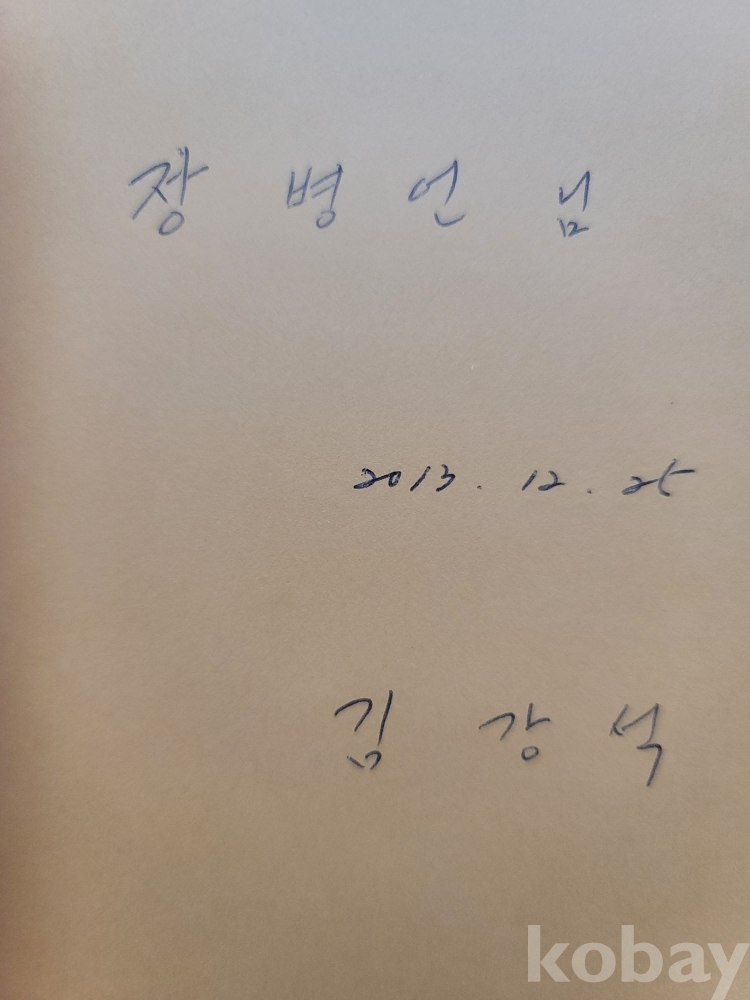 장 병 언 님
2013. 12. 25
김 강 석
kobay